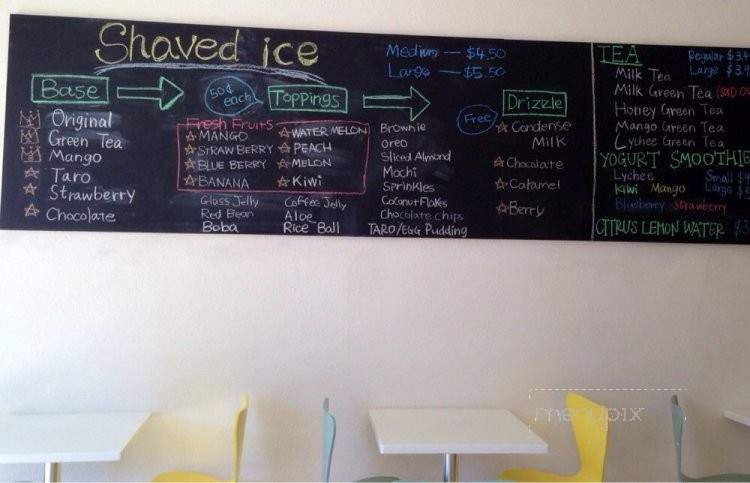 Shaved ice
Medium — $4.50
Large — $5.50
Base
50¢ each
Toppings
Free
Drizzle
Original
Green Tea
Mango
Taro
Strawberry
Chocolate
Fresh Fruits
MANGO
STRAWBERRY
BLUE BERRY
BANANA
WATER MELON
PEACH
MELON
KiWi
Glass Jelly
Red Bean
Boba
Coffee Jelly
Aloe
Rice Ball
Brownie
oreo
Sliced Almond
Mochi
Sprinkles
CoconutFlakes
Chocolate chips
TARO/EGG Pudding
Condense
MiLK
Chocolate
Calamel
Berry
TEA
Regular $3.
Large $3.
Milk Tea
Milk Green Tea
Honey Green Tea
Mango Green Tea
Lychee Green Tea
YOGURT SMOOTHIE
Lychee Small $
Kiwi Mango Large $
Blueberry Strawberry
CITRUS LEMON WATER $3
menupix